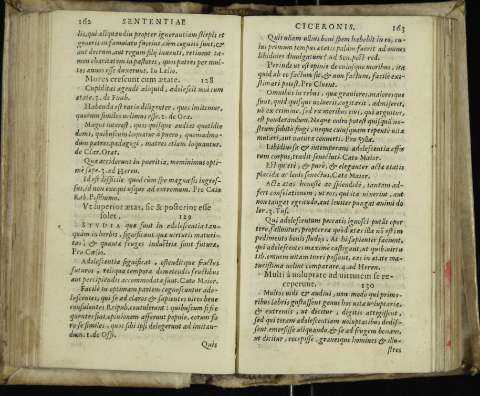 162 SENTENTIAE
lis, qui aliquandiu propter ignorantiam stirpis et
generis in famulatu fuerint, cum cogniti sunt, et
aut deorum, aut regum filij inuenti, retinent ta-
men charitatem in pastores, quos patres per mul-
tos annos esse duxerunt. In Lælio.
Mores crescunt cum ætate. 128
Cupiditas agendi aliquid, adolescit unà cum
ætate. 5. de Finib.
Habenda est ratio diligenter, quos imitemur,
quorum similes uelimus esse. 3. de Ora.
Magni interest, quos quisque audiat quotidie
domi, quibuscum loquatur à puero, quemadmo-
dum patres, pædagogi, matres etiam loquantur.
de Clar. Orat.
Quæ acciderunt in pueritia, meminimus opti-
mè sæpe. 3. ad Heren.
Id est difficile quod cum spe magna sis ingres-
sus, id non exequi usque ad extremum. Pro
Rab. Posthumo.
Vt superior ætas, sic & posterior esse
solet. 129
STVDIA quæ sunt in adolescentia tan-
quam in herbis, significant quæ uirtutis maturi-
tas, & quantæ fruges industriæ sint futuræ.
Pro Cælio.
Adolescentia significat, ostenditque fructus
futuros, reliqua tempora demetendis fructibus
aut percipiendis accommodata sunt. Cato Maior.
Facile in optimam partem cognoscuntur ado-
lescentes, qui se ad claros & sapientes uiros bene
consulentes Reipub. contulerunt: quibuscum si fre-
quentes sint, opinionem afferunt populo, eorum fo-
re se similes, quos sibi ipsi delegerunt ad imitan-
dum. 2. de Offi.
Quis
CICERONIS. 163
Quis ullam ullius boni spem haberet in eo, cu-
ius primum tempus ætatis palàm fuerit ad omnes
libidines diuulgatum? Ad Sen. post red.
Perinde ut est opinio de cuiusque moribus, ita
quid ab eo factum sit, & non factum, facilè exi-
stimari potest. Pro Cluent.
Omnibus in rebus, quæ grauiores, maioresque
sunt, quid quisque uoluerit, cogitarit, admiserit,
non ex crimine, sed ex moribus eius, qui arguitur,
est ponderandum. Neque enim potest quisquam no-
strum subitò fingi, neque cuiusquam repentè uita
mutari, aut natura conuerti. Pro Sylla.
Libidinosa & intemperans adolescentia effœ-
tum corpus, tradit senectuti. Cato Maior.
Est quietè, & purè, & eleganter actæ ætatis
placida ac lenis senectus. Cato Maior.
Acta ætas honestè ac splendidè, tantam ad-
fert consolationem, ut eos, qui ita uixerint, aut
non tangat ægritudo, aut leuiter pungat animi do-
lor. 3. Tus.
Qui adolescentum peccatis ignosci putat opor-
tere, falluntur, propterea quòd ætas illa non est im-
pedimento bonis studijs. At hi sapienter faciunt,
qui adolescentes maximè castigant, ut quib. uirtu-
tib. omnem uitam tueri possint, eas in ætate ma-
turissima uelint comparare. 4. ad Heren.
Multi à uoluptate ad uirtutem se re-
ceperunt. 130
Multos uidi & audiui, non modo qui primo-
ribus labris gustassent genus hoc uitæ uoluptariæ,
& extremis, ut dicitur, digitis attigissent,
sed qui totam adolescentiam uoluptatibus dedis-
sent, emersisse aliquando, & se ad frugem bonam,
ut dicitur, recepisse, grauesque homines & illu-
stres